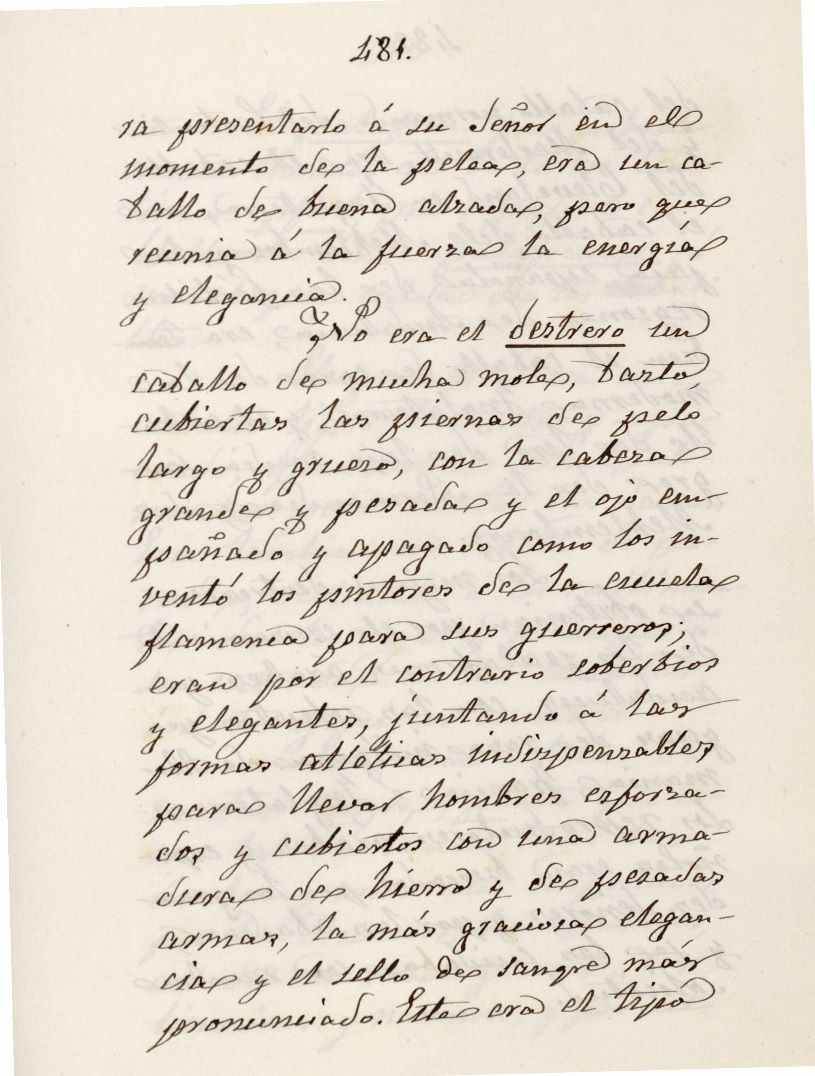 481.
ra presentarlo á su Señor en el
momento de la pelea, era un ca-
ballo de buena alzada, pero que
reunia á la fuerza la energiá
y elegancia.
No era el destrero un
caballo de mucha mole, basto,
cubiertas las piernas de pelo
largo y grueso, con la cabeza
grande y pesada y el ojo em-
pañado y apagado como los in-
ventó los pintores de la escuela
flamenca para sus guerreros;
eran por el contrario soberbios
y elegantes, juntando á las
formas atléticas indispensables
para llevar hombres esforza-
dos y cubiertos con una arma-
dura de hierro y de pesadas
armas, la más graciosa elegan-
cia y el sello de sangre más
pronunciado. Este era el tipo